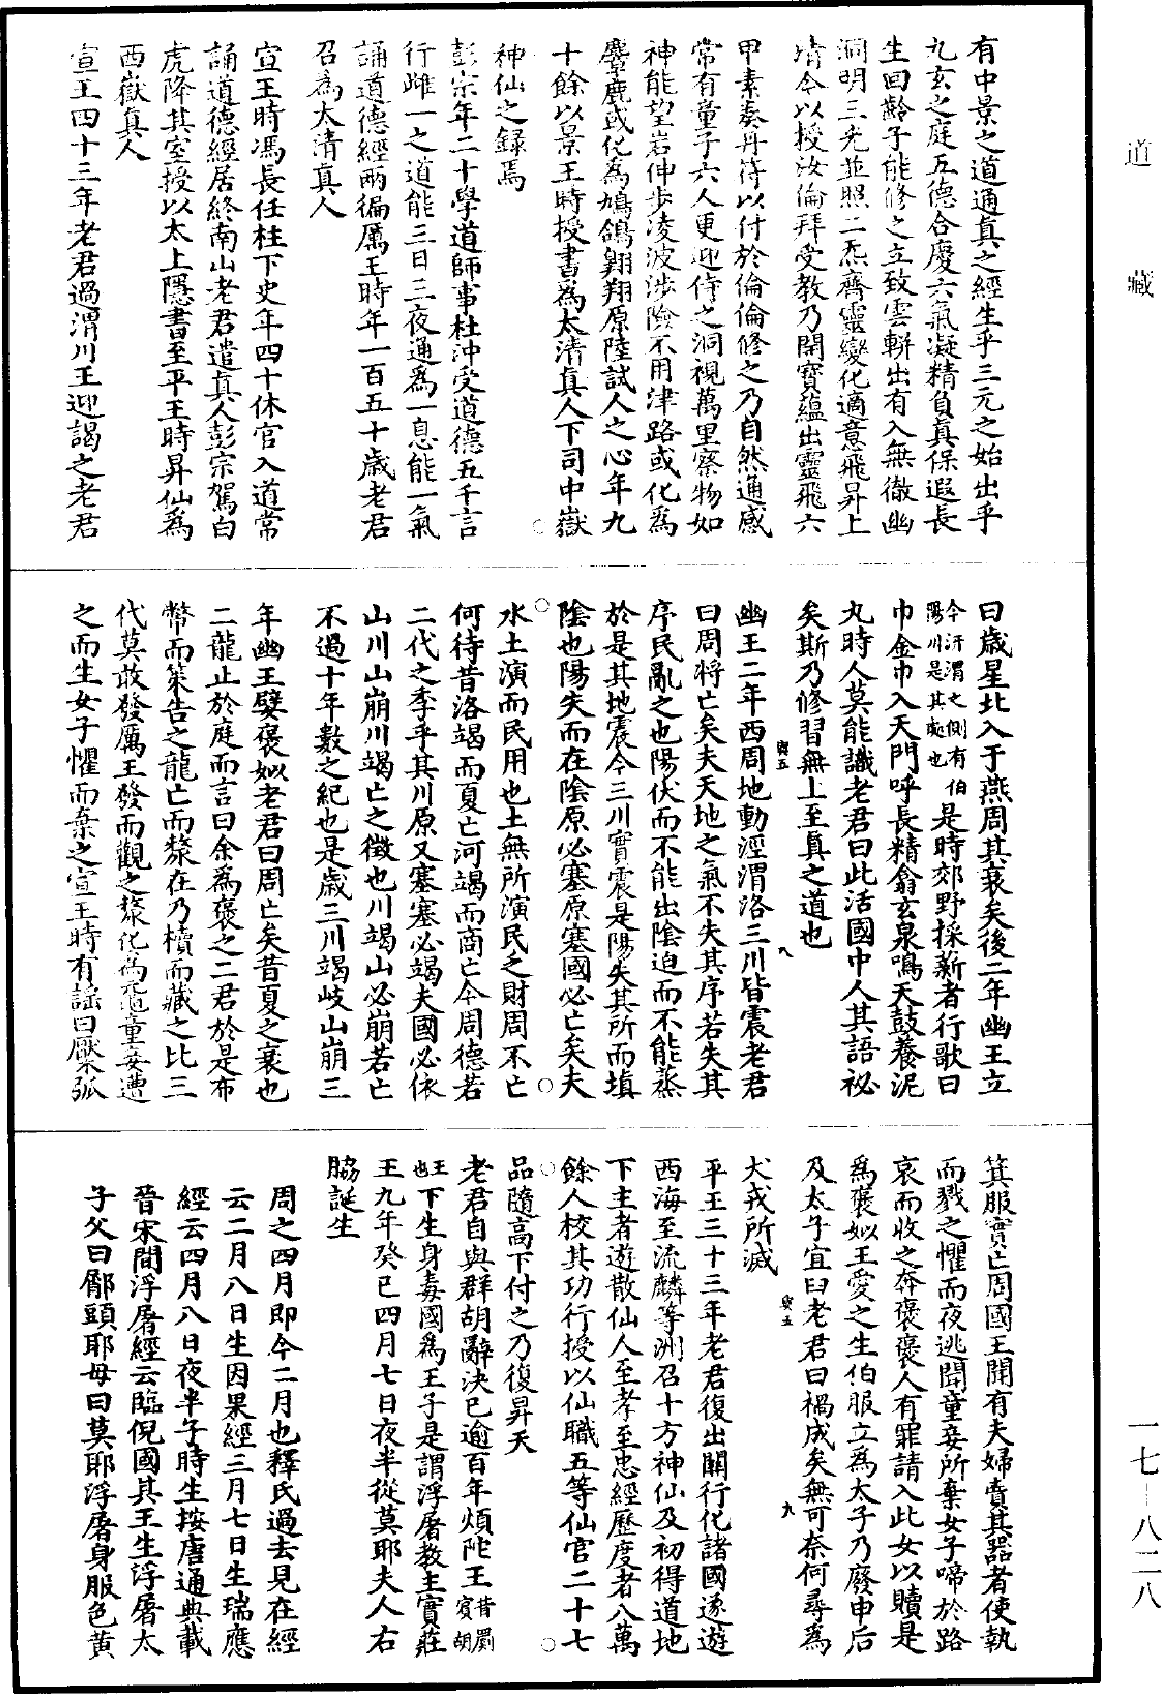 道藏
有中景之道通真之經生乎三元之始出乎
九玄之庭五德合慶六氣凝精負真保遐長
生回齡子能修之立致雲軿出有入無徹幽
洞明三光並照二炁齊靈變化適意飛昇上
清今以授汝倫拜受教乃開寶蘊出靈飛六
甲素奏丹符以付於倫倫修之乃自然通感
常有童子六人更迎侍之洞視萬里察物如
神能望岩伸步淩波涉險不用津路或化為
麞鹿或化為鳩鴿翱翔原陸試人之心年九
十餘以景王時授書為太清真人下司中嶽
神仙之録焉
彭宗年二十學道師事杜沖受道德五千言
行雌一之道能三日三夜通為一息能一氣
誦道德經兩徧厲王時年一百五十歲老君
召為太清真人
宣王時馮長任柱下史年四十休官入道常
誦道德經居終南山老君遣真人彭宗駕白
虎降其室授以太上隱書至平王時昇仙為
西嶽真人
宣王四十三年老君過渭川王迎謁之老君
曰歲星北入于燕周其衰矣後二年幽王立
今汧渭之側有伯
陽川是其處也
是時郊野採薪者行歌曰
巾金巾入天門呼長精翕玄泉鳴天鼓養泥
丸時人莫能識老君曰此活國中人其語祕
矣斯乃修習無上至真之道也
幽王二年西周地動涇渭洛三川皆震老君
曰周將亡矣夫天地之氣不失其序若失其
序民亂之也陽伏而不能出陰迫而不能蒸
於是其地震今三川實震是陽失其所而填
陰也陽失而在陰原必塞原塞國必亡矣夫
水土演而民用也土無所演民乏財周不亡
何待昔洛竭而夏亡河竭而商亡今周德若
二代之季乎其川原又塞塞必竭夫國必依
山川山崩川竭亡之徵也川竭山必崩若亡
不過十年數之紀也是歲三川竭岐山崩三
年幽王嬖褒姒老君曰周亡矣昔夏之衰也
二龍止於庭而言曰余為褒之二君於是布
幣而策告之龍亡而漦在乃櫝而藏之比三
代莫敢發厲王發而觀之漦化為黿童妾遭
之而生女子懼而棄之宣王時有謠曰檿弧
箕服實亡周國王聞有夫婦賣其器者使執
而戮之懼而夜逃聞童妾所棄女子啼於路
哀而收之奔褒褒人有罪請入此女以贖是
為褒姒王愛之生伯服立為太子乃廢申后
及太子宜臼老君曰禍成矣無可奈何尋為
犬戎所滅
平王三十三年老君復出關行化諸國遂遊
西海至流麟等洲召十方神仙及初得道地
下主者遊散仙人至孝至忠經歷度者八萬
餘人校其功行授以仙職五等仙官二十七
品隨高下付之乃復昇天
老君自與群胡辭決已逾百年煩陀王
昔罽
賓胡
王
也
下生身毒國為王子是謂浮屠教主實莊
王九年癸巳四月七日夜半從莫耶夫人右
脇誕生
周之四月即今二月也釋氏過去見在經
云二月八日生因果經三月七日生瑞應
經云四月八日夜半子時生按唐通典載
晉宋間浮屠經云臨倪國其王生浮屠太
子父曰屬頭耶母曰莫耶浮屠身服色黃
一七—八二八